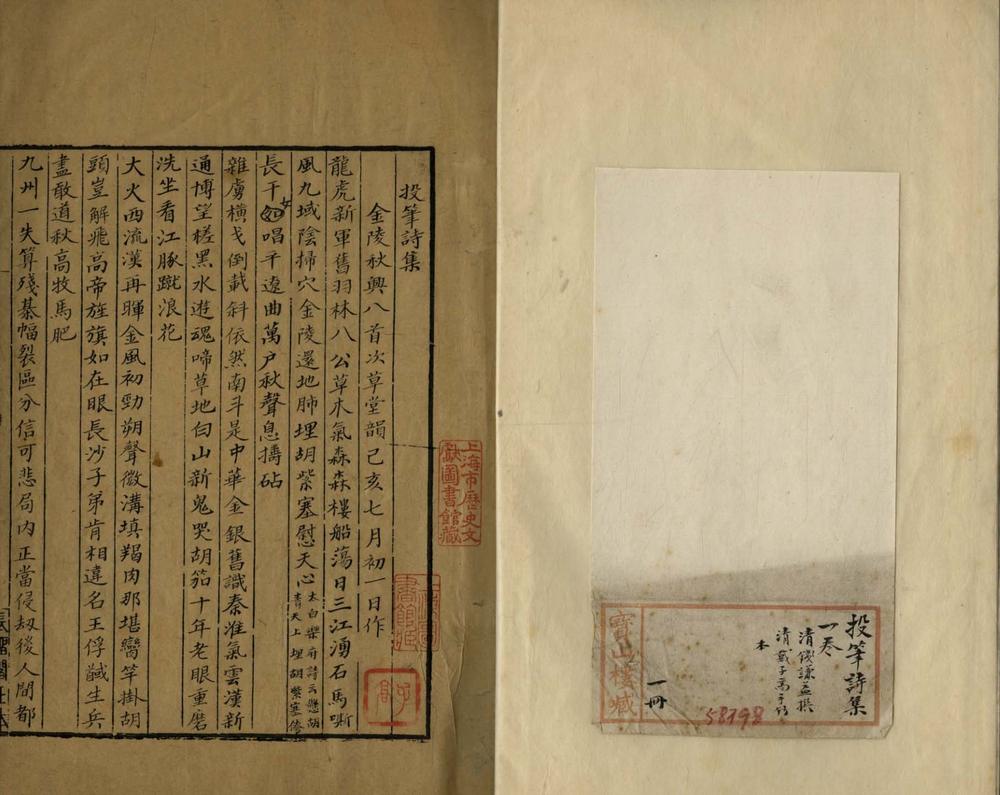 投筆詩集
一卷
清錢謙益撰
清戴子高手鈔
本
一冊
寶山樓藏
58198
上海市歷史文
獻圖書館藏
投筆詩集
金陵秋興八首次草堂韻己亥七月初一日作
龍虎新軍舊羽林八公草木氣森森樓船蕩日三江湧石馬嘶
風九域陰掃穴金陵還地肺埋胡紫塞慰天心太白樂府詩云懸胡
青天上埋胡紫塞傍
長干女唱平遼曲萬户秋聲息擣砧
雜虜橫戈倒載斜依然南斗是中華金銀舊識秦淮氣雲漢新
通博望槎黑水遊魂啼草地白山新鬼哭胡笳十年老眼重磨
洗坐看江豚蹴浪花
大火西流漢再暉金風初勁朔聲微溝填羯肉那堪臠竿掛胡
頭豈解飛高帝旌旗如在眼長沙子弟肯相違名王俘馘生兵
盡敢道秋高牧馬肥
九州一失算殘棊幅裂區分信可悲局内正當侵劫後人間都